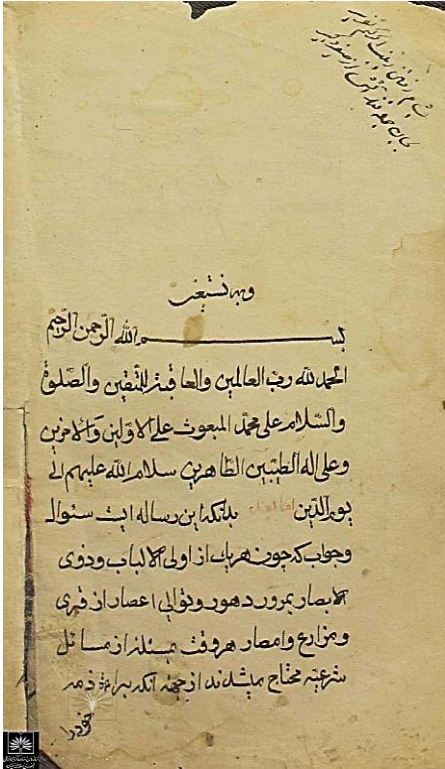 وبه نستعین
بسم الله الرّحمن الرّحیم
الحمد لله ربّ العالمین والعاقبة للمتّقین والصّلوة
والسّلام علی محمّد المبعوث علی الاوّلین والاخرین
وعلی اله الطیّبین الطّاهرین سلام الله علیهم الی
یوم الدّین اما بعد بدانکه این رساله ایست سئوال
وجواب که چون هریك از اولی الالباب وذوی
الابصار بمرور دهور وتوالی اعصار از قری
ومزارع وامصار هر وقت بمسئله از مسائل
شرعیّه محتاج میشدند از جهة آنکه براءة ذمه
خود را